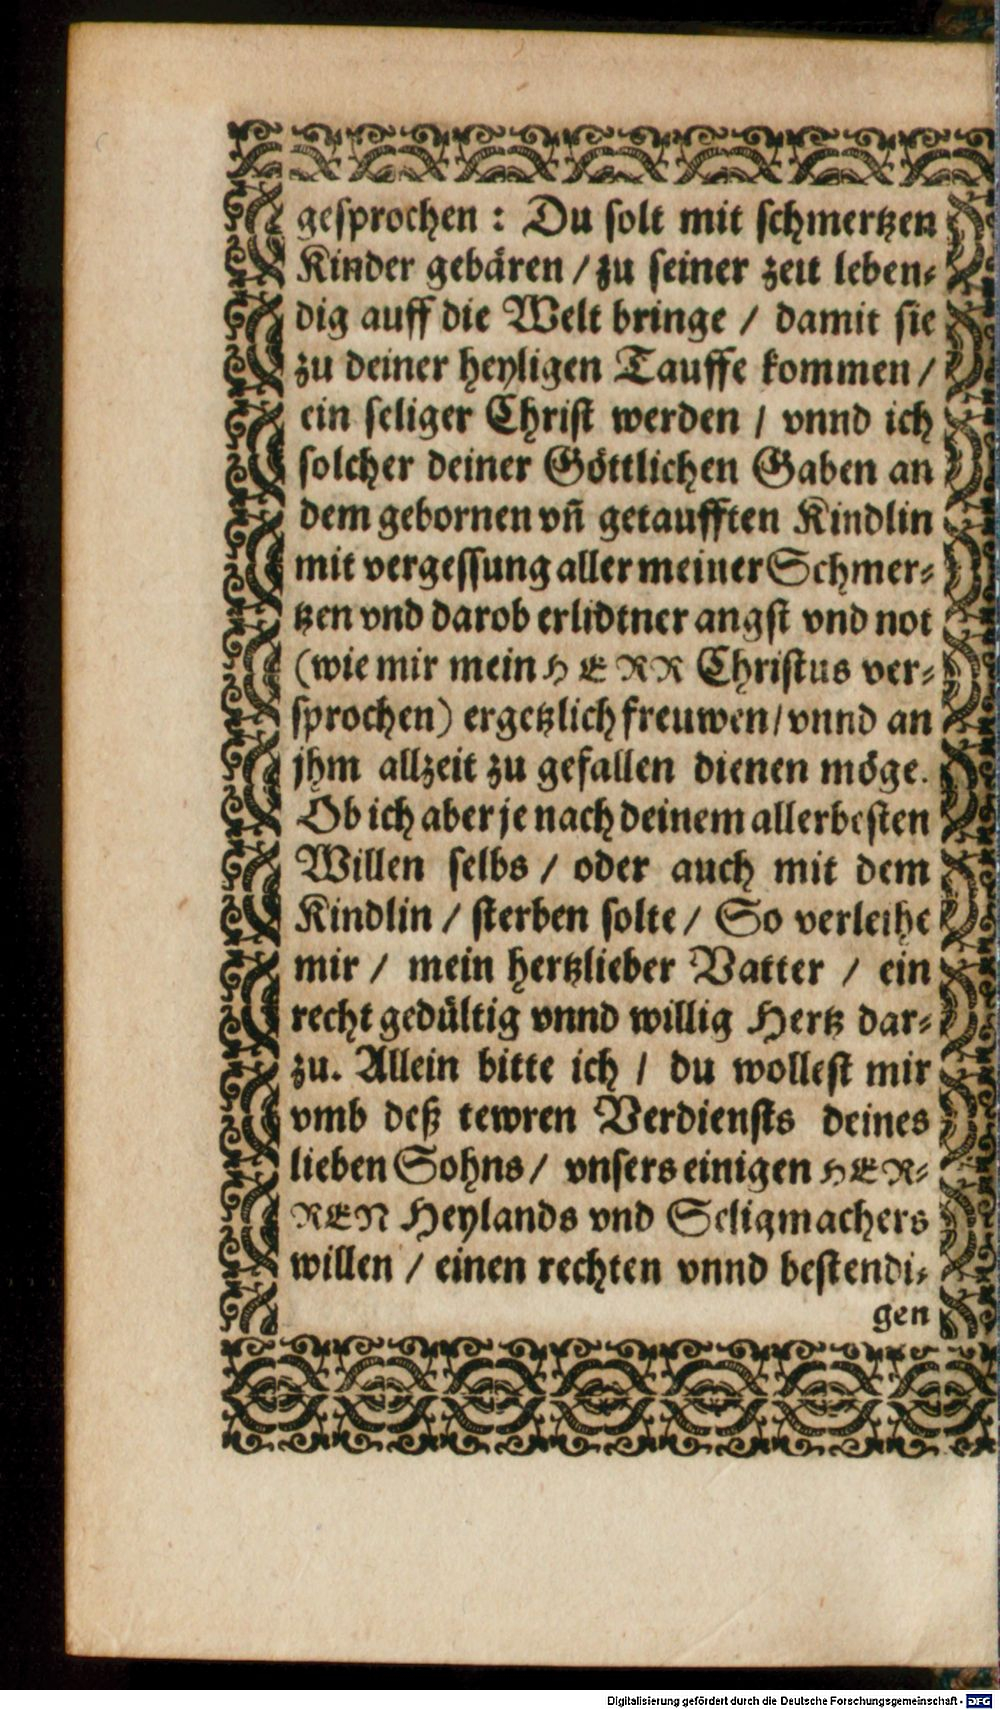 gesprochen : Du solt mit schmertzen
Kinder gebären / zu seiner zeit leben⸗
dig auff die Welt bringe / damit sie
zu deiner heyligen Tauffe kommen /
ein seliger Christ werden / vnnd ich
solcher deiner Göttlichen Gaben an
dem gebornen vñ getaufften Kindlin
mit vergessung aller meiner Schmer⸗
tzen vnd darob erlidtner angst vnd not
(wie mir mein HERR Christus ver⸗
sprochen) ergetzlich freuwen / vnnd an
jhm allzeit zu gefallen dienen möge.
Ob ich aber je nach deinem allerbesten
Willen selbs / oder auch mit dem
Kindlin / sterben solte / So verleihe
mir / mein hertzlieber Vatter / ein
recht gedültig vnnd willig Hertz dar⸗
zu. Allein bitte ich / du wollest mir
vmb deß tewren Verdiensts deines
lieben Sohns / vnsers einigen HER⸗
REN Heylands vnd Seligmachers
willen / einen rechten vnnd bestendi⸗
gen
Digitalisierung gefördert durch die Deutsche Forschungsgemeinschaft - DFG